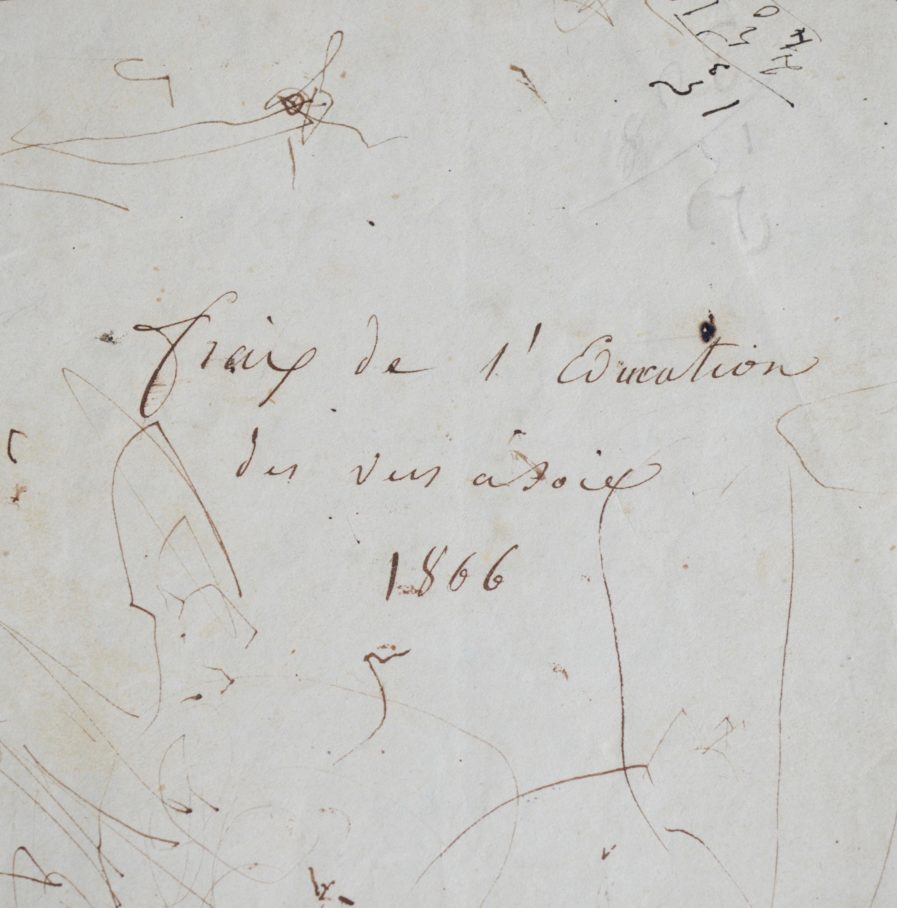 fraix de l'Education
des vers à soie
1866